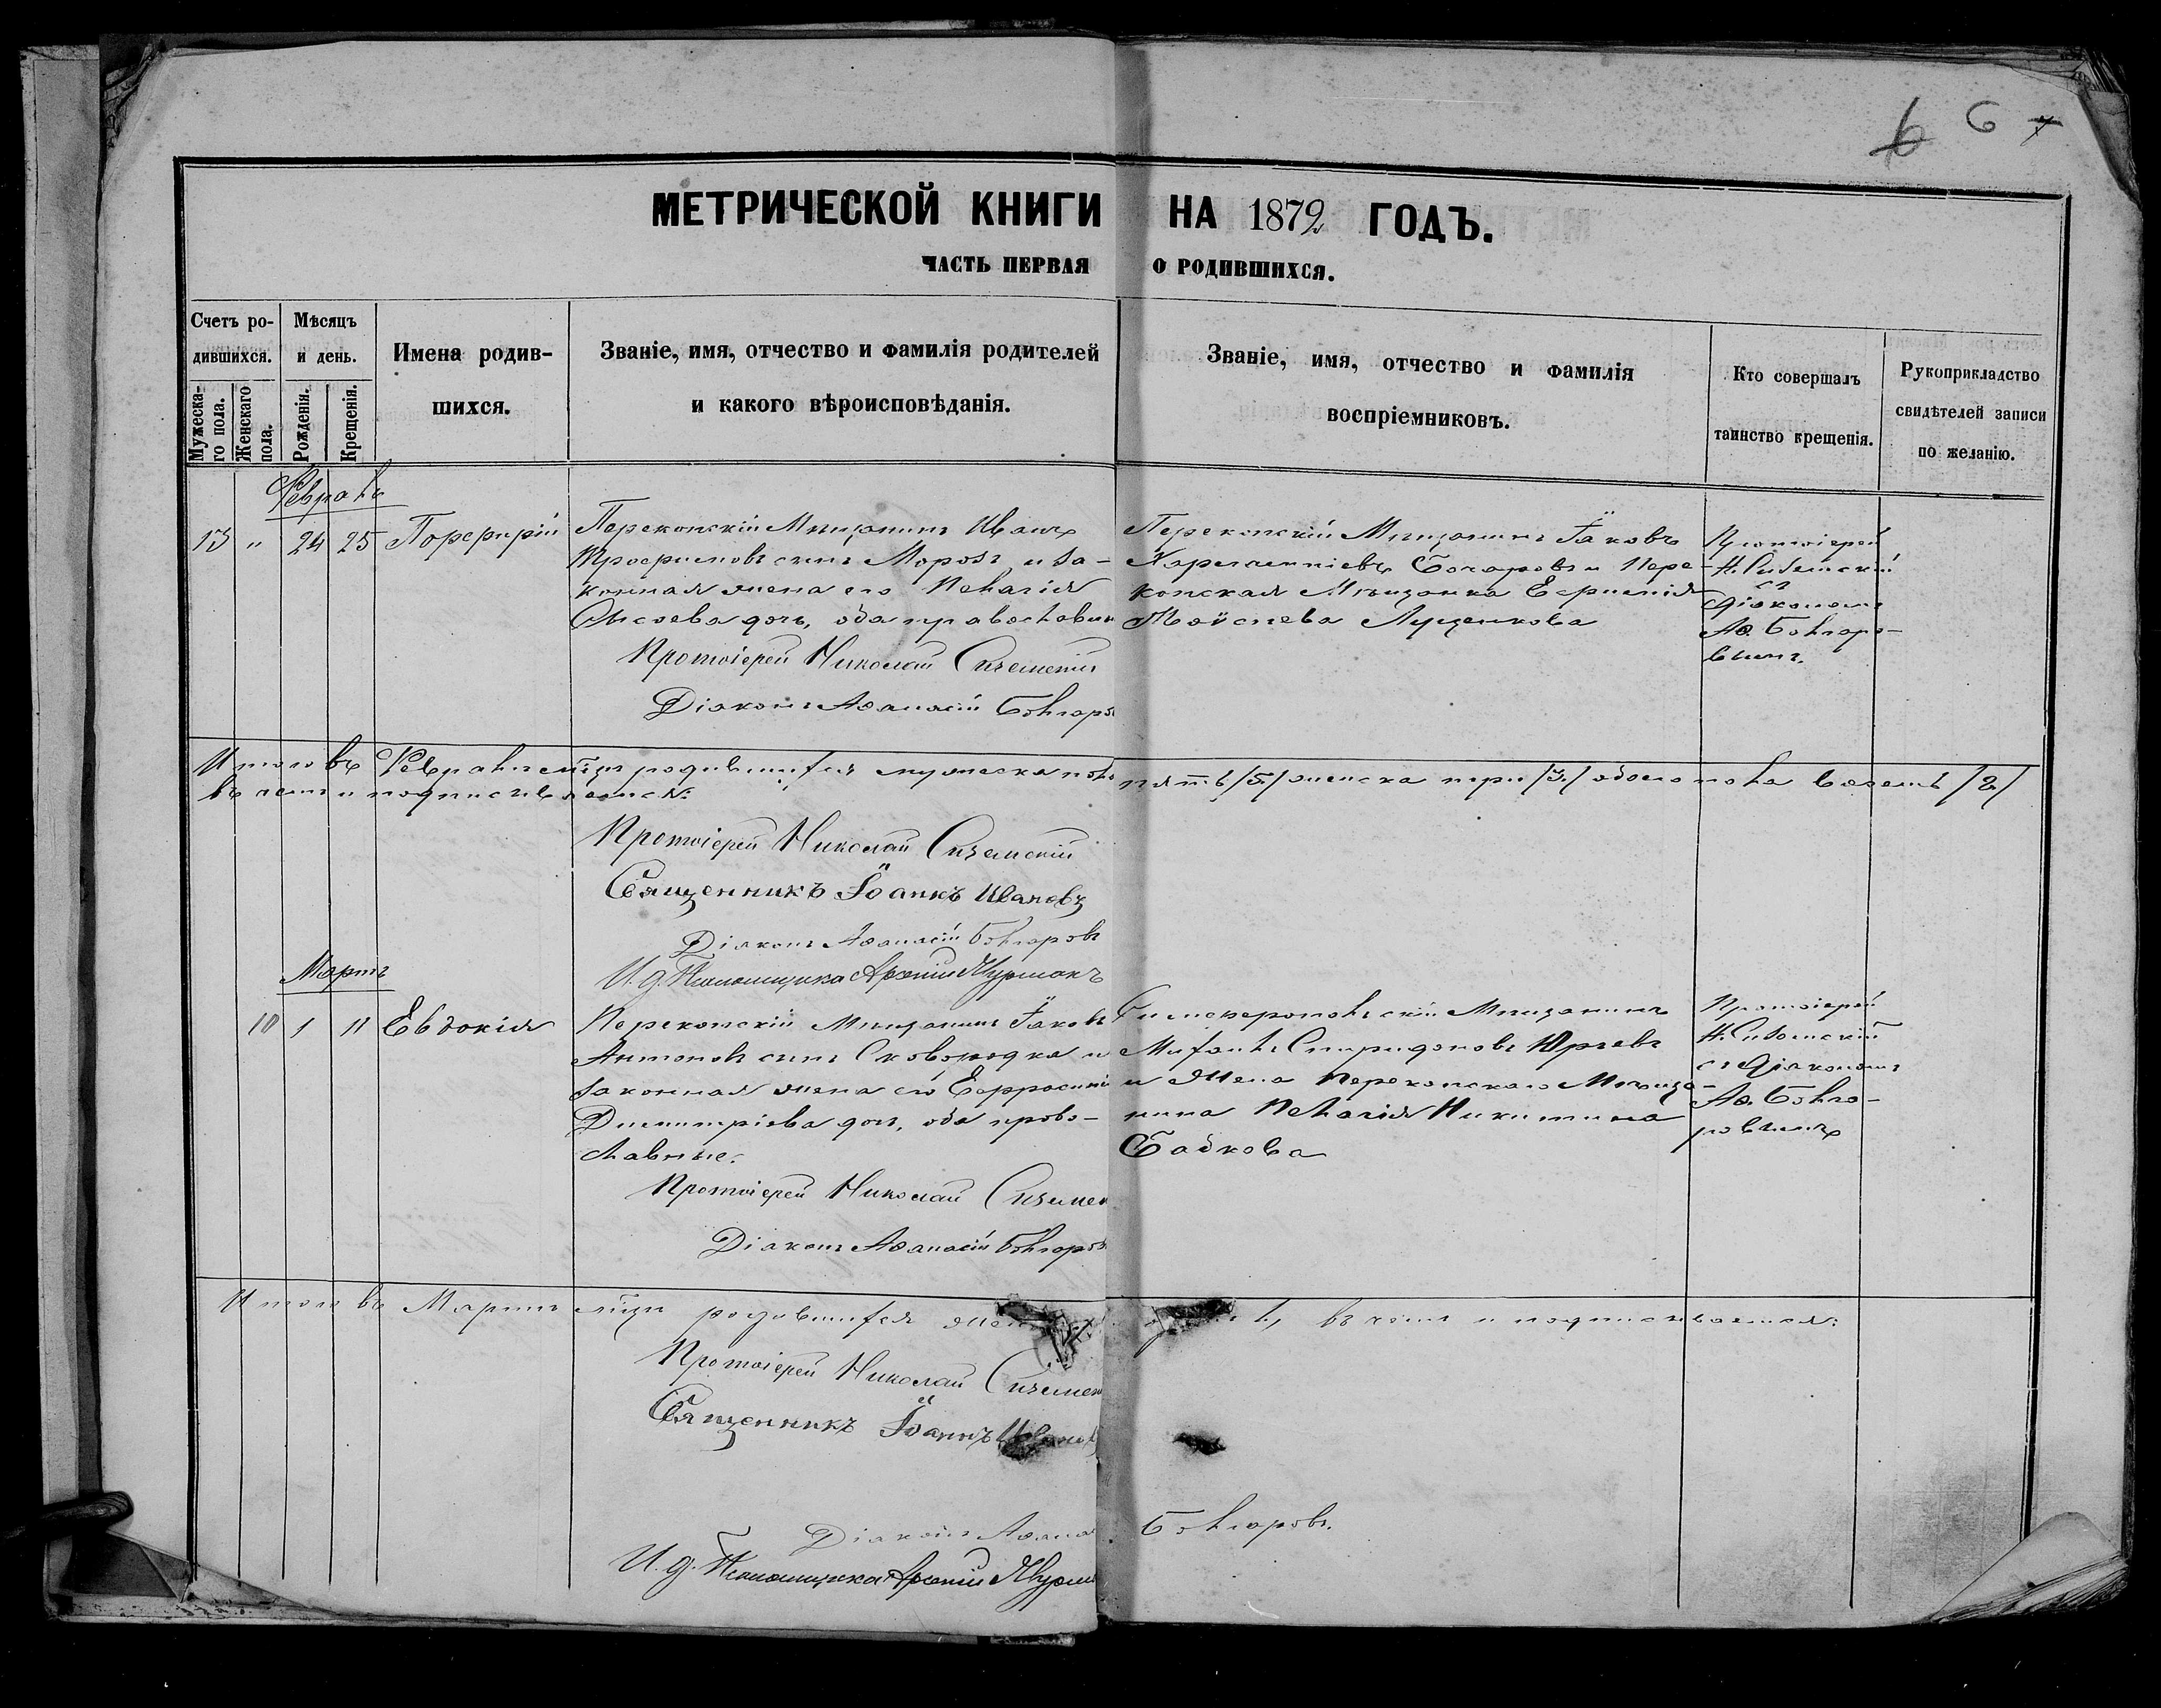 6 6 7
МЕТРИЧЕСКОЙ КНИГИ НА 1879 ГОДЪ.
ЧАСТЬ ПЕРВАЯ О РОДИВШИХСЯ.
Счетъ родившихся.
Мужескаго пола.
Женскаго пола.
Мѣсяцъ и день.
Рожденія.
Крещенія.
Имена родившихся.
Званіе, имя, отчество и фамилія родителей
и какого вѣроисповѣданія.
Званіе, имя, отчество и фамилія
воспріемниковъ.
Кто совершалъ
таинство крещенія.
Рукоприкладство
свидѣтелей записи
по желанію.
Февраль
13 " 24 25 Порфирій
Перекопскій Мѣщанинъ Иванъ
Трофимовъ сынъ Морозъ и за-
конная жена его Пелагія
дочь, оба православн
Протоіерей Николай
Діаконъ Аѳанасій Болгаровъ
Перекопскій Мѣщанинъ Іаковъ
Бочаровъ и Пере-
копская Мѣщанка Евфимія
Моѵсеева Луценкова
Протоіерей
Н.
съ
діакономъ
Аѳ. Болгаро-
вымъ.
Итого въ Февралѣ мцѣ родившихся мужеска пола пять /5/ женска три /3/ обоего пола восемь /8/
въ чемъ и подписуемся:
Протоіерей Николай
Священникъ Іоаннъ Ивановъ
Діаконъ Аѳанасій Болгаровъ
И. д. Псаломщика Арсеній
Мартъ
10 1 11 Евдокія
Перекопскій Мѣщанинъ Іаковъ
Антоновъ сынъ Сковородка и
законная жена его Евфросинія
Димитріева дочь, оба право-
славные.
Протоіерей Николай
Діаконъ Аѳанасій Болгаровъ
Симферопольскій Мѣщанинъ
Михаилъ Спиридоновъ Юрьевъ
и жена Перекопскаго Мѣща-
нина Пелагія Никитина
Бабкова
Протоіерей
Н.
съ діакономъ
Аѳ. Болга-
ровымъ
Итого въ Мартѣ мцѣ родившихся въ чемъ и подписываемся:
Протоіерей Николай
Священникъ Іоаннъ Ивановъ
Діаконъ Болгаровъ.
И. д. Псаломщика Арсеній